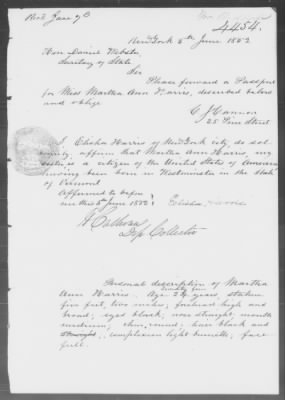 Recd June 7
4454.
New York 5th June 1852
Hon. Daniel Webster
Secretary of State
Sir
Please forward a Passport
for Miss Martha Ann Harris, described below
and oblige
C J Hannon
25 Pine Street
I, Elisha Harris of New York city, do sol
emnly affirm that Martha Ann Harris, my
sister is a citizen of the United States of America
having been born in Westminster in the State
of Vermont
Affirmed to before
me this 5th June 1852 Elisha Harris
Calhoun
Dep Collector
Personal description of Martha
Ann Harris. Age 24 years, stature
five feet, two inches, forehead high and
broad; eyes black; nose straight; mouth
medium; chin, round; hair black and
straight; complexion light brunette; face
full.